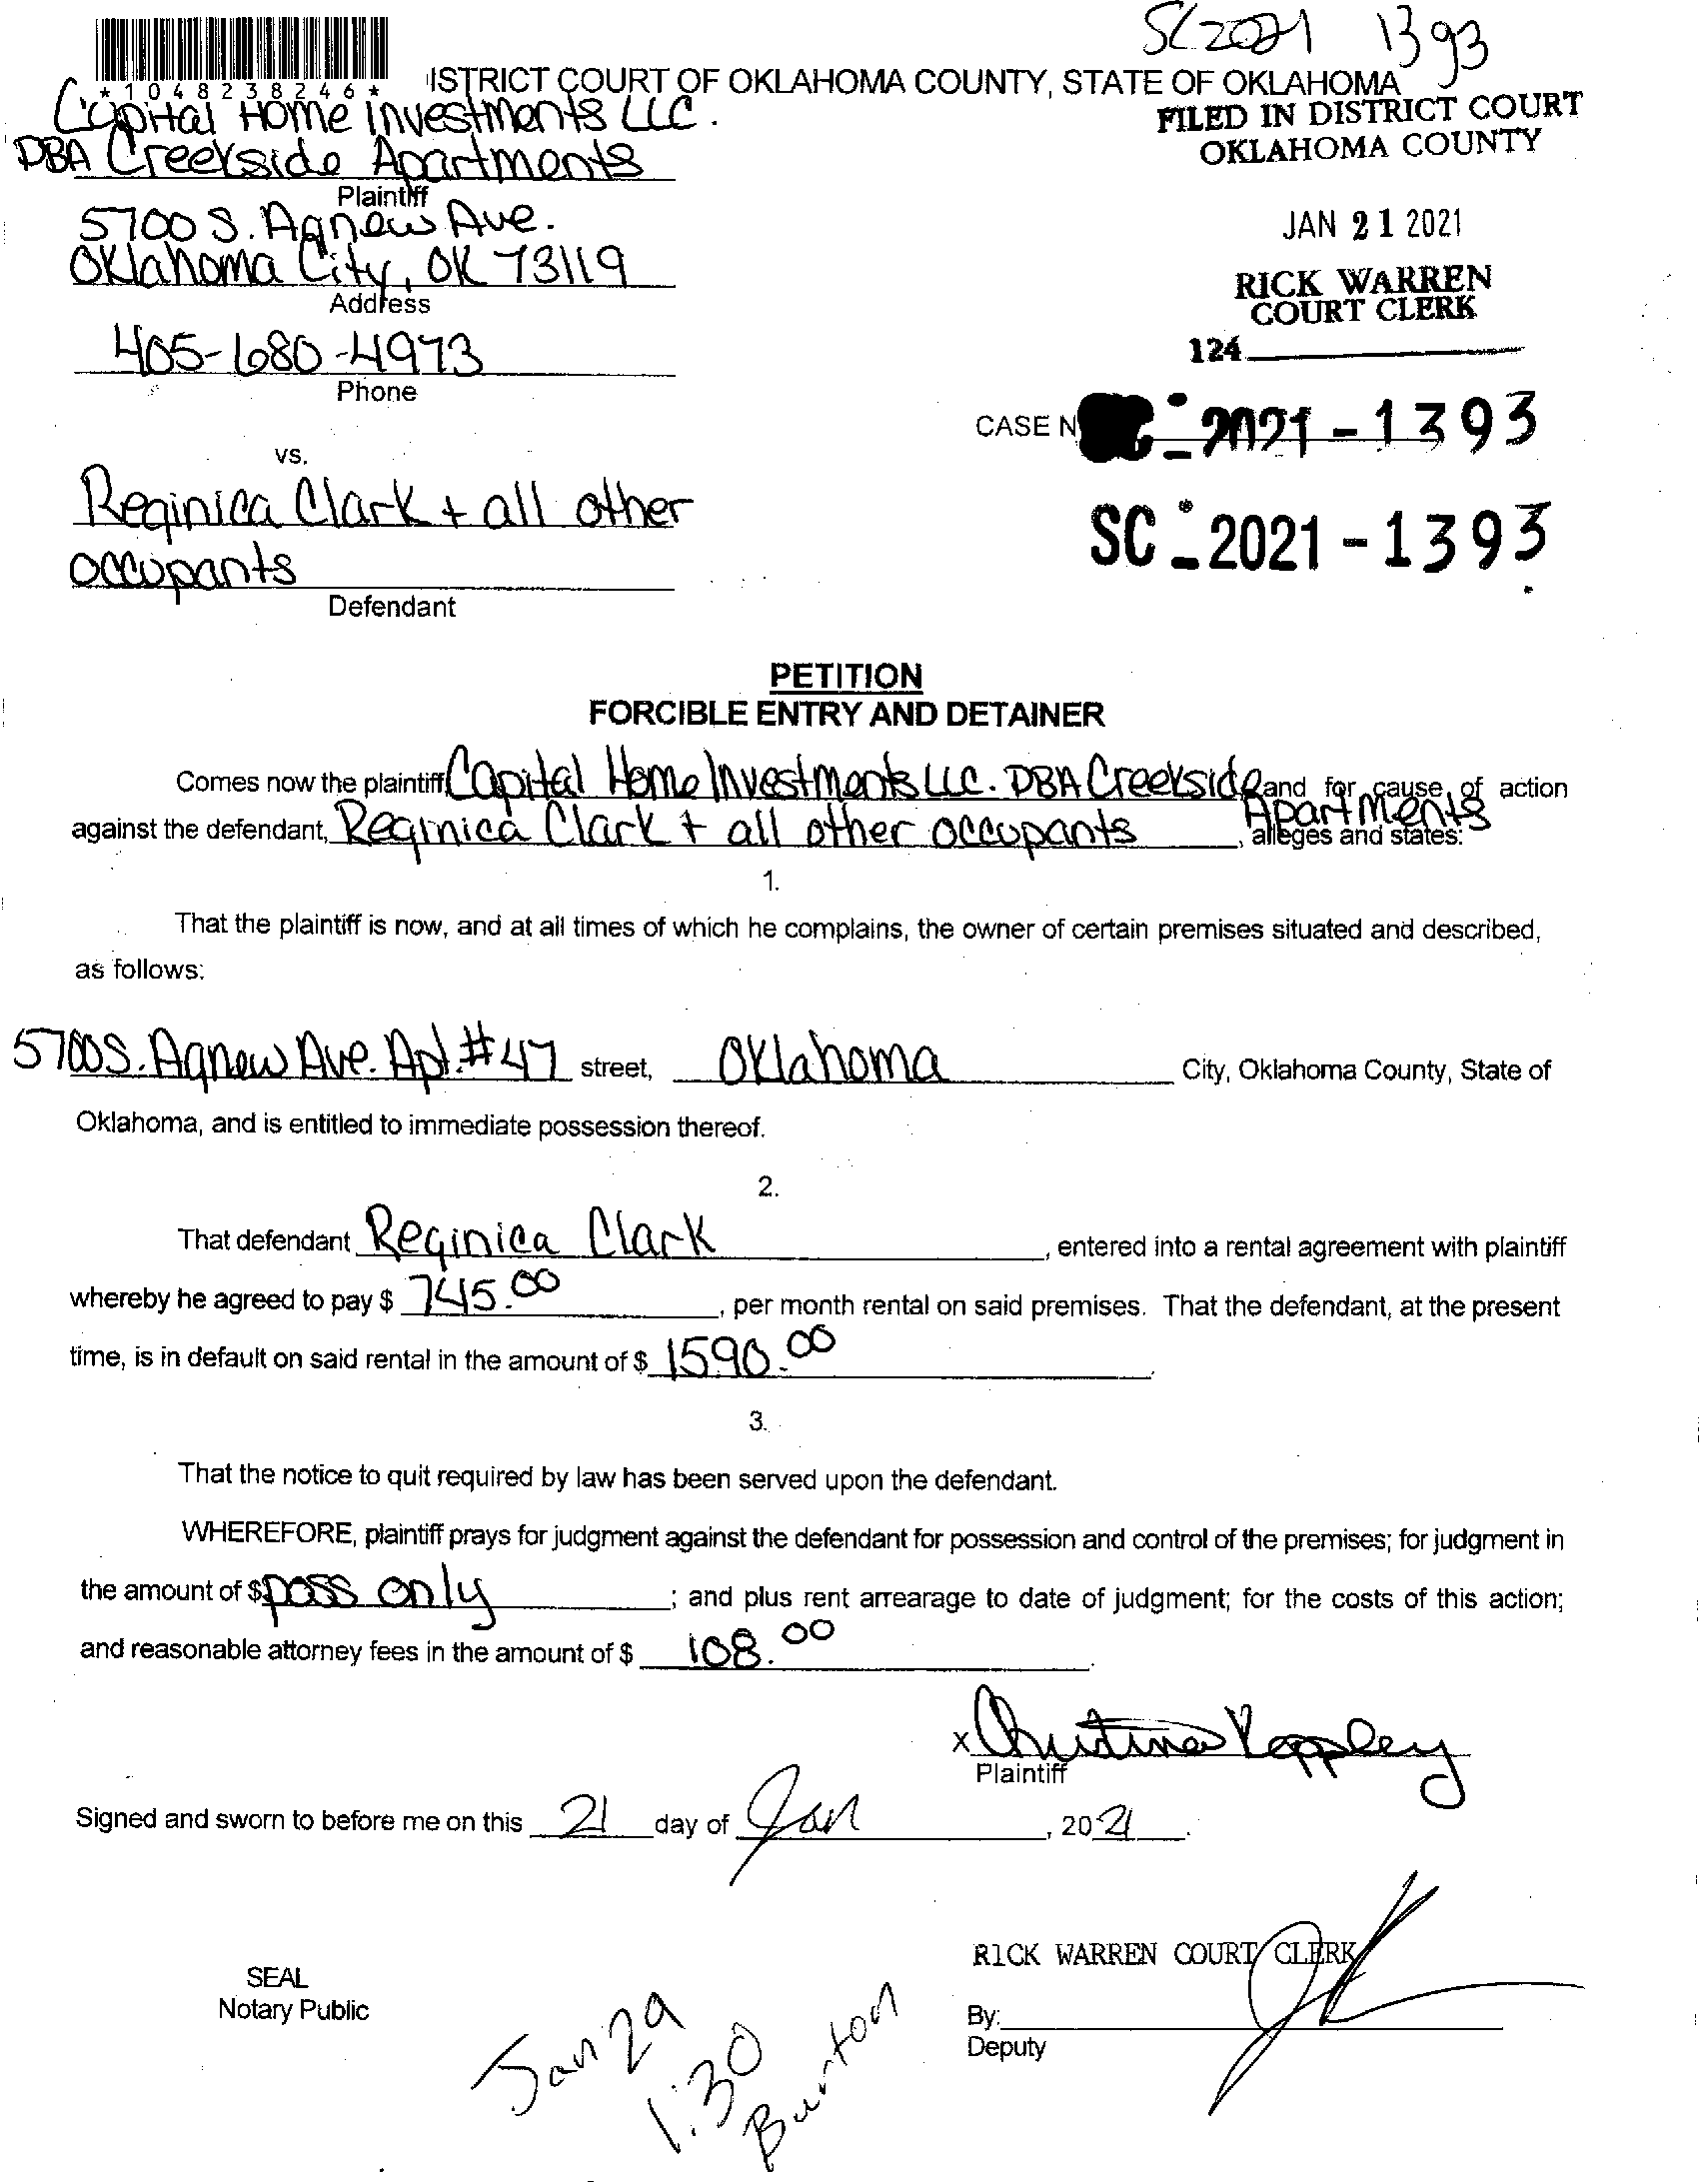 SC2021 1393
*1048238246*
ISTRICT COURT OF OKLAHOMA COUNTY, STATE OF OKLAHOMA
FILED IN DISTRICT COURT
OKLAHOMA COUNTY
Capital Home Investments LLC.
DBA Creekside Apartments
Plaintiff
5700 S. Agnew Ave.
Oklahoma City, OK 73119
Address
405-680-4973
Phone
JAN 21 2021
RICK WARREN
COURT CLERK
124
CASE N 2021-1393
SC-2021-1393
vs.
Reginica Clark + all other
occupants
Defendant
PETITION
FORCIBLE ENTRY AND DETAINER
Comes now the plaintiff, Capital Home Investments LLC. DBA Creekside and for cause of action
Apartments
against the defendant, Reginica Clark + all other occupants, alleges and states:
1.
That the plaintiff is now, and at all times of which he complains, the owner of certain premises situated and described,
as follows:
5700 S. Agnew Ave. Apt. #47 street, Oklahoma City, Oklahoma County, State of
Oklahoma, and is entitled to immediate possession thereof.
2.
That defendant Reginica Clark, entered into a rental agreement with plaintiff
whereby he agreed to pay $ 745.00, per month rental on said premises. That the defendant, at the present
time, is in default on said rental in the amount of $ 1590.00.
3.
That the notice to quit required by law has been served upon the defendant.
WHEREFORE, plaintiff prays for judgment against the defendant for possession and control of the premises; for judgment in
the amount of $ poss only; and plus rent arrearage to date of judgment; for the costs of this action;
and reasonable attorney fees in the amount of $ 108.00.
x Christina
Plaintiff
Signed and sworn to before me on this 21 day of Jan, 2021.
RICK WARREN COURT CLERK
SEAL
Notary Public
By:
Deputy
Jan 29
1:30
Burton